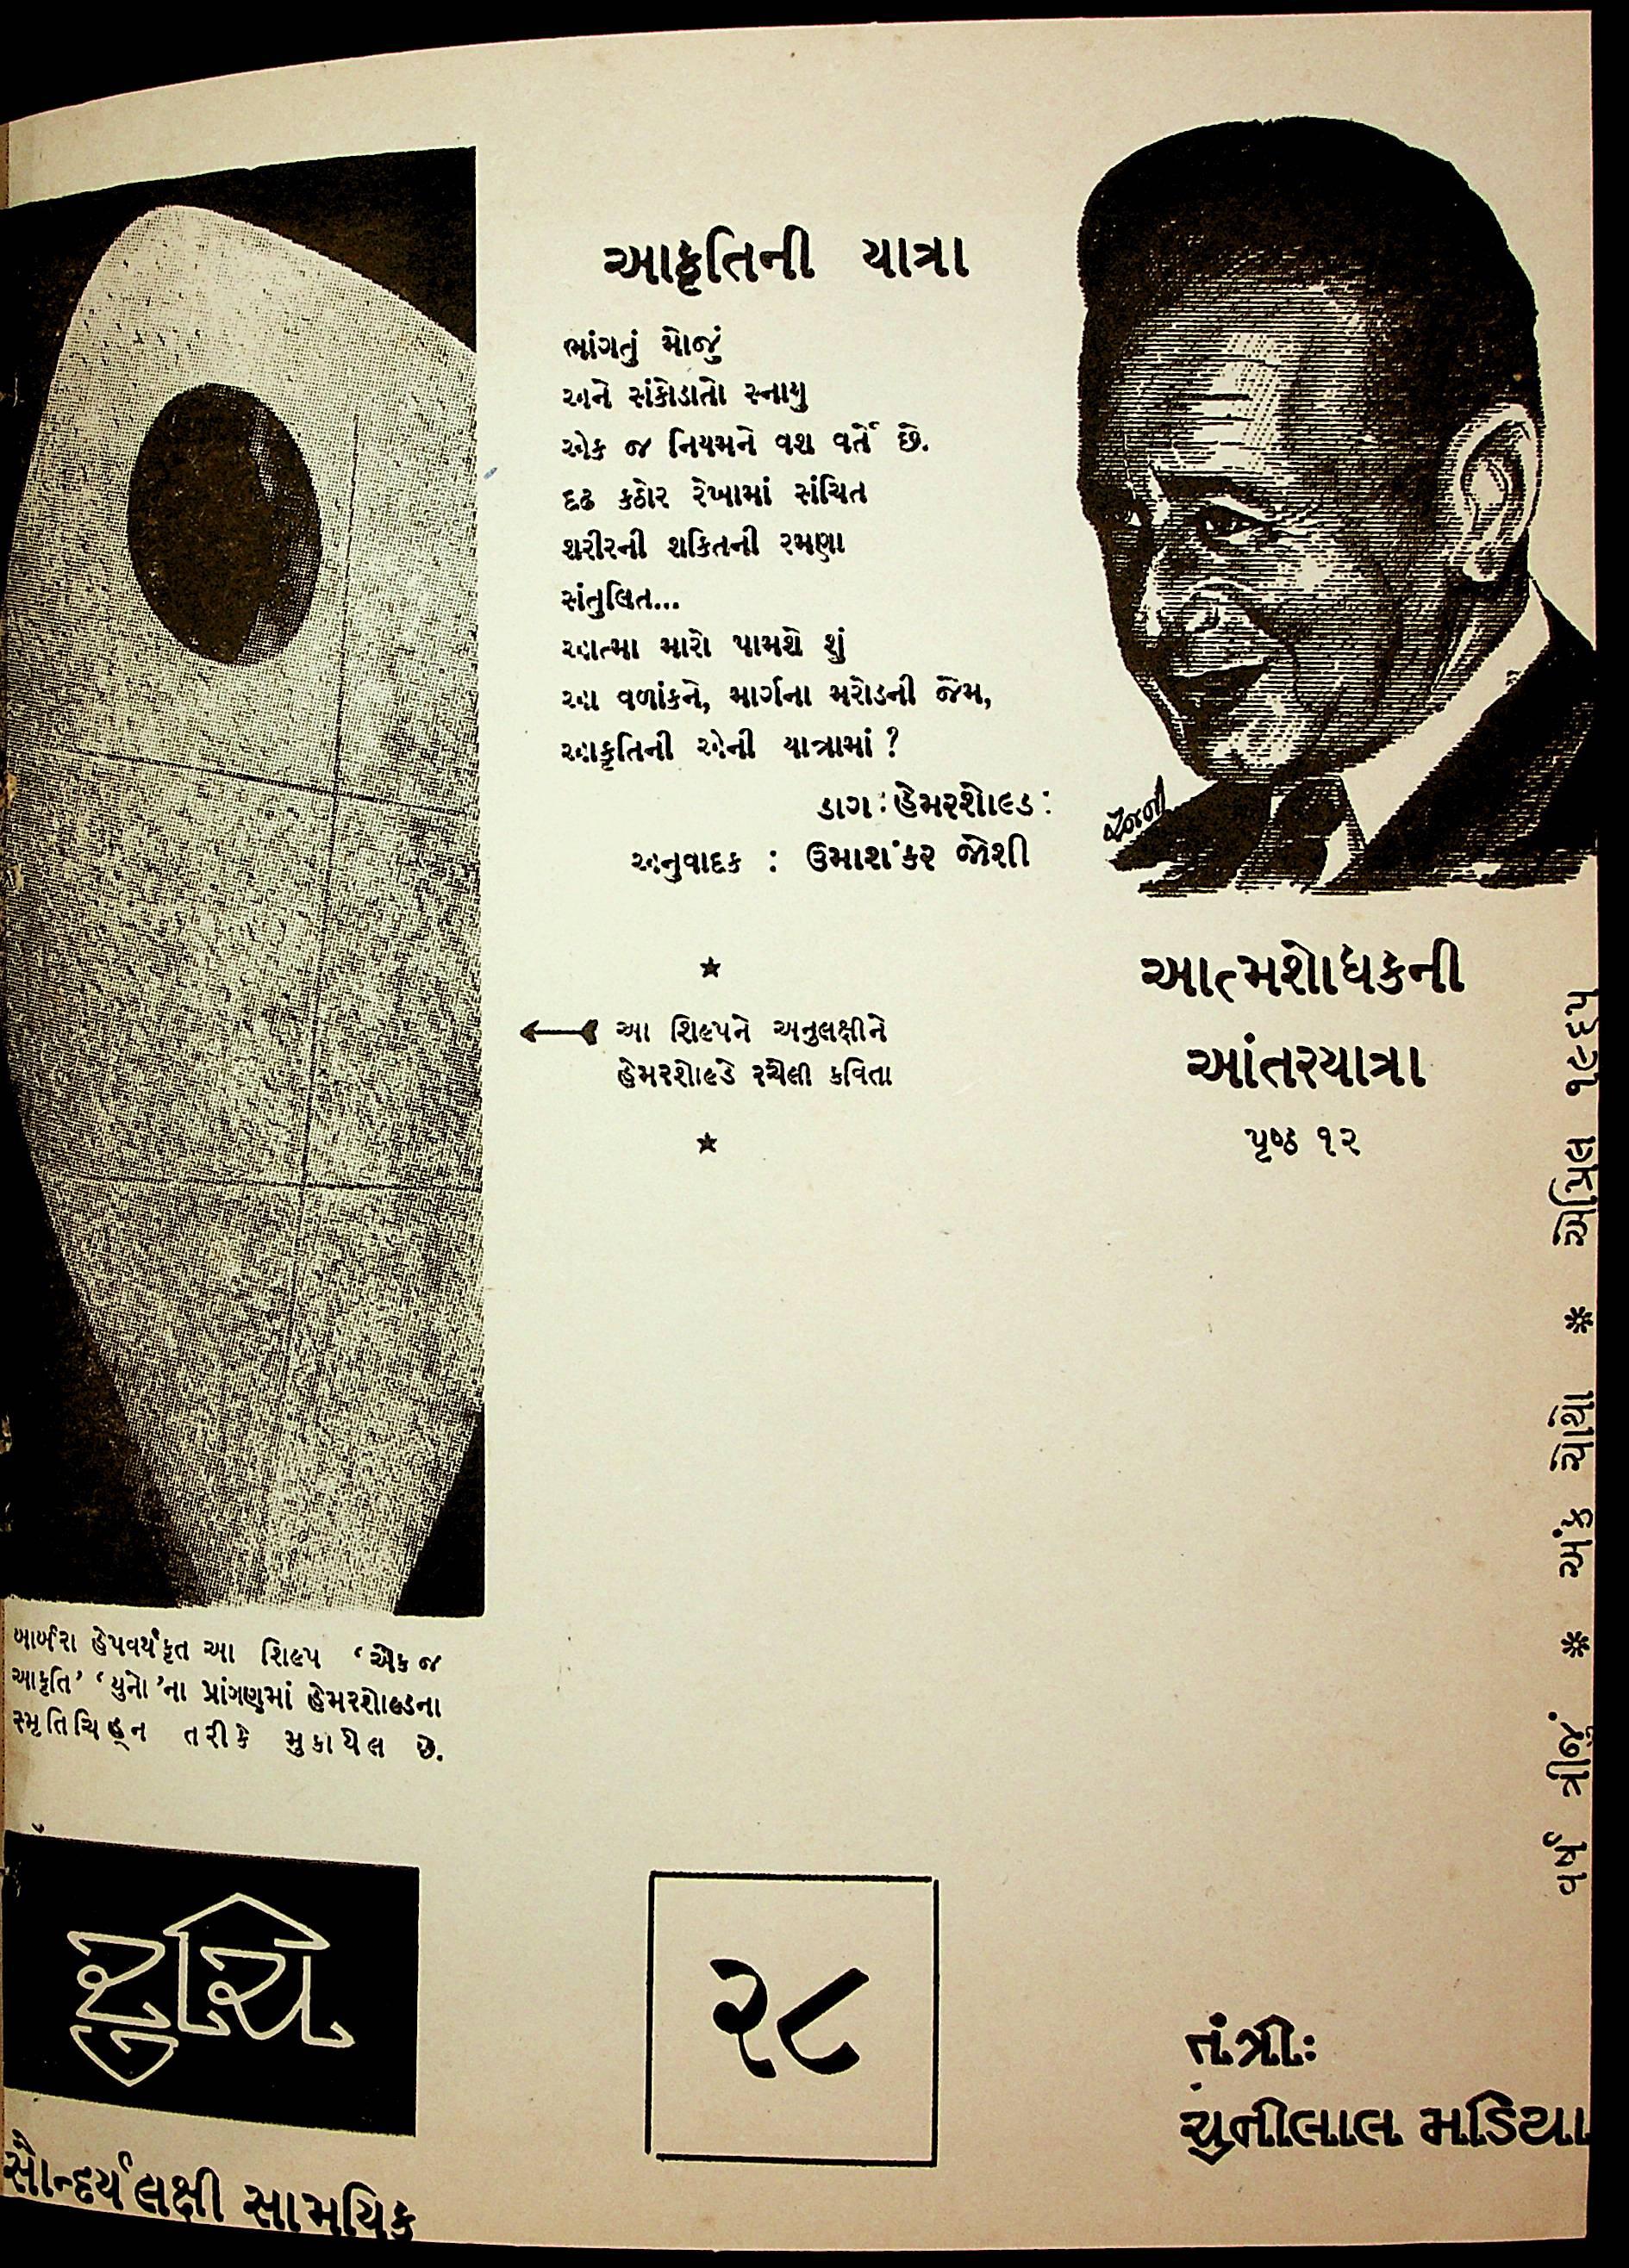 આકૃતિની યાત્રા
ભાંગતું મોજું
અને સંકોડાતો સ્નાયુ
એક જ નિયમને વશ વર્તે છે.
દૃઢ કઠોર રેખામાં સંચિત
શરીરની શકિતની રમણા
સંતુલિત...
આત્મા મારો પામશે શું
આ વળાંકને, માર્ગના મરોડની જેમ,
આકૃતિની એની યાત્રામાં ?
ડાગ : હેમરશોલ્ડ :
અનુવાદક : ઉમાશંકર જોશી
આ શિલ્પને અનુલક્ષીને
હેમરશોલ્ડે રચેલી કવિતા
આત્મશોધકની
આંતરયાત્રા
પૃષ્ઠ ૧૨
વર્ષ ત્રીજું * અંક ચોથો * એપ્રિલ ૧૯૬૫
બાર્બરા હેપવર્થકૃત આ શિલ્પ ‘એક જ
આકૃતિ’ ‘યુનો’ના પ્રાંગણમાં હેમરશોલ્ડના
સ્મૃતિચિહ્ન તરીકે મુકાયેલ છે.
રુચિ
સૌન્દર્યલક્ષી સામયિક
૨૮
તંત્રી:
ચુનીલાલ મડિયા